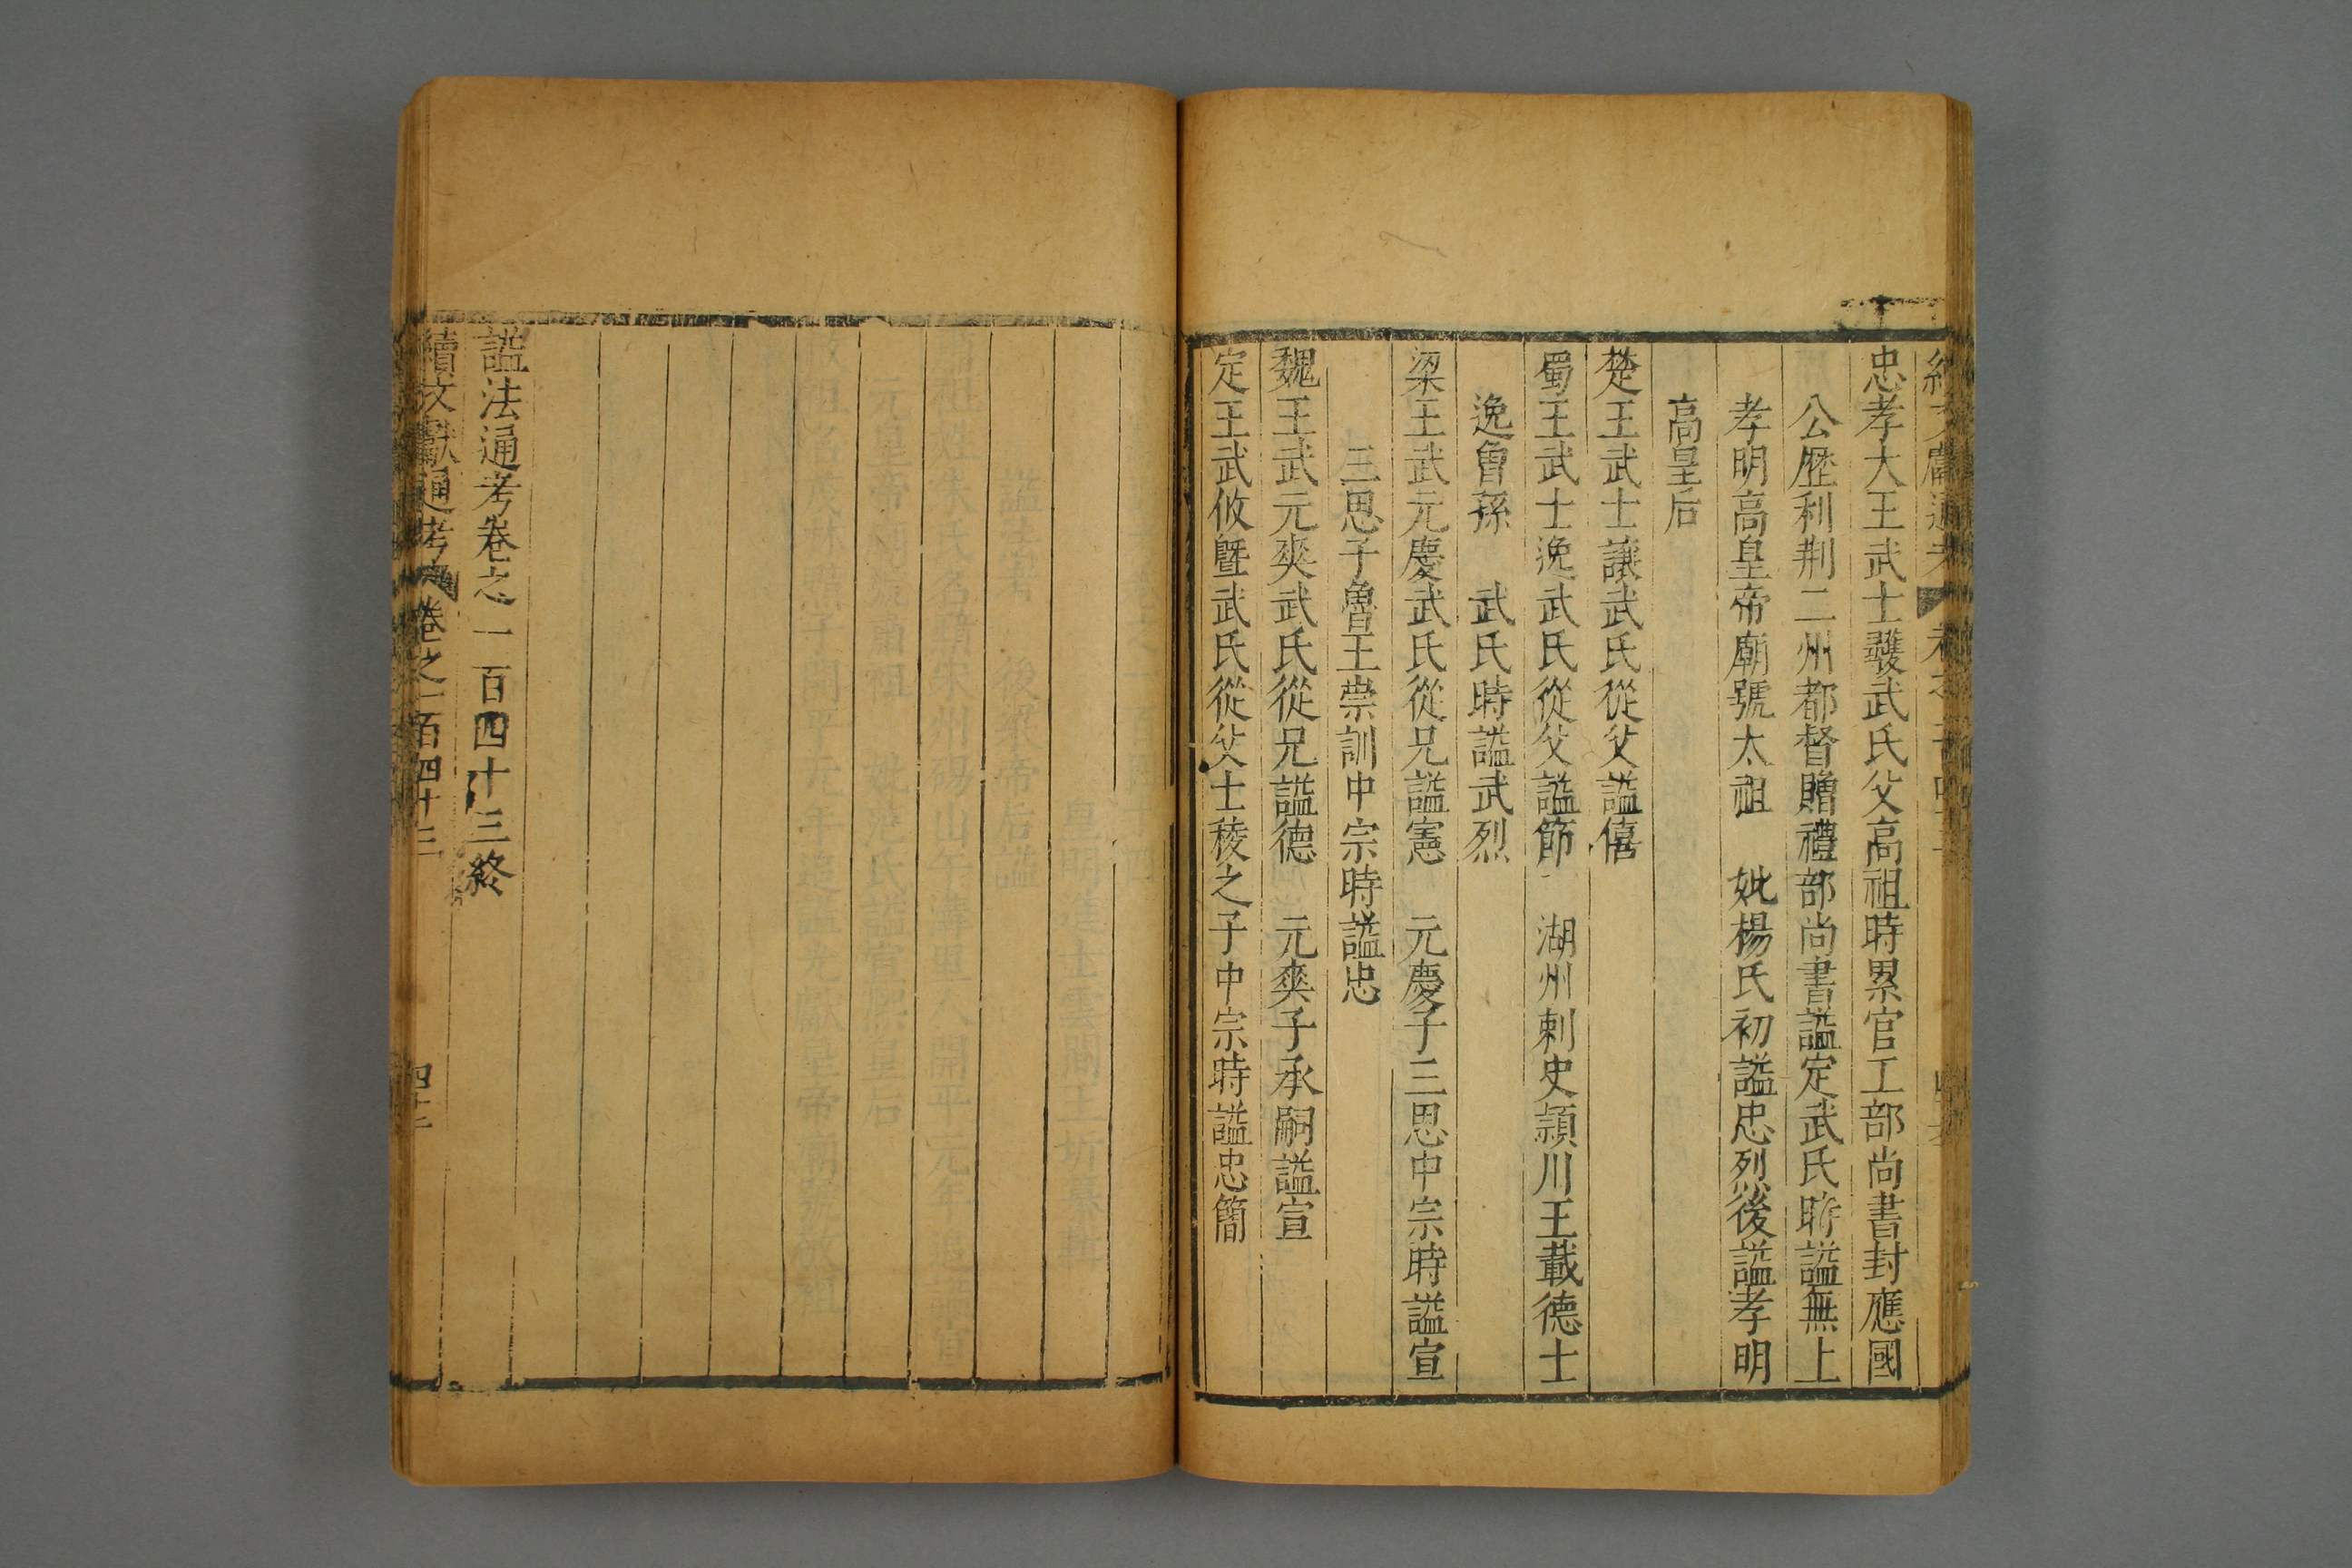 忠孝大王武士彠武氏父高祖時累官工部尚書封應國
公歷利荆二州都督贈禮部尚書謚定武氏時謚無上
孝明高皇帝廟號太祖　妣楊氏初謚忠烈後謚孝明
高皇后
楚王武士讓武氏從父謚僖
蜀王武士逸武氏從父謚節　湖州刺史潁川王載德士
逸曾孫　武氏時謚武烈
梁王武元慶武氏從兄謚憲　元慶子三思中宗時謚宣
三思子魯王崇訓中宗時謚忠
魏王武元爽武氏從兄謚德　元爽子承嗣謚宣
定王武攸曁武氏從父士稜之子中宗時謚忠簡
謚法通考卷之一百四十三終
續文獻通考　卷之一百四十三　四十三